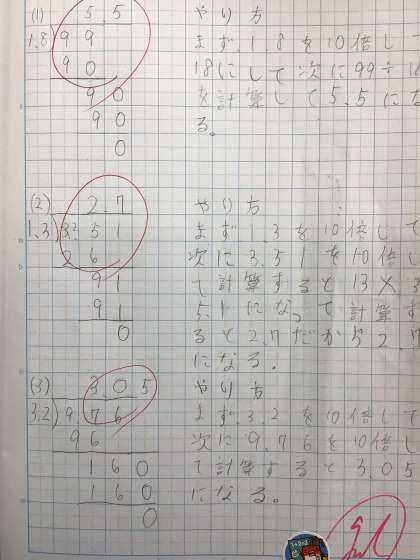 (1) 5.5 やり方
1.8)99 まず、1.8を10倍して
90 18にして次に99÷18
90 を計算して5.5にな
90 る。
0
(2) 2.7 やり方
1.3)3.51 まず1.3を10倍して
26 次に3.51を10倍し
91 て計算すると13×3
91 5.1になって計算す
0 ると2.7だから2.7
になる。
(3) 3.05 やり方
3.2)9.76 まず、3.2を10倍して
96 次に9.76を10倍し
160 て計算すると3.05
160 になる。
0